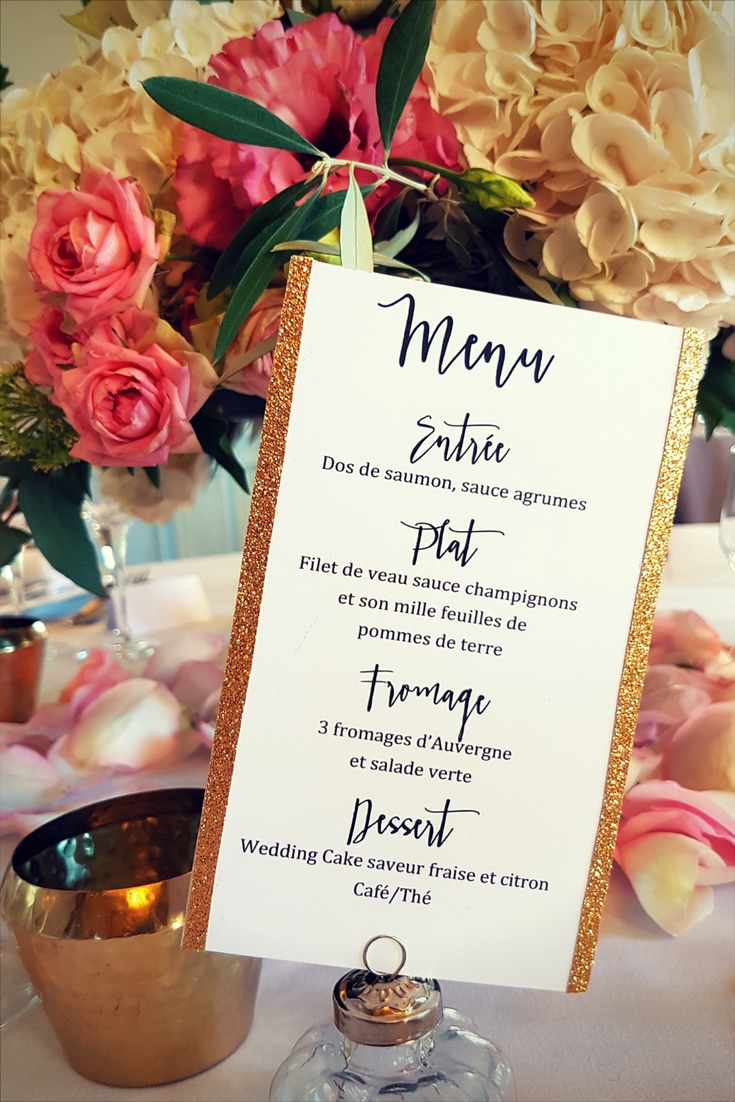 Menu
Entrée
Dos de saumon, sauce agrumes
Plat
Filet de veau sauce champignons
et son mille feuilles de
pommes de terre
Fromage
3 fromages d'Auvergne
et salade verte
Dessert
Wedding Cake saveur fraise et citron
Café/Thé